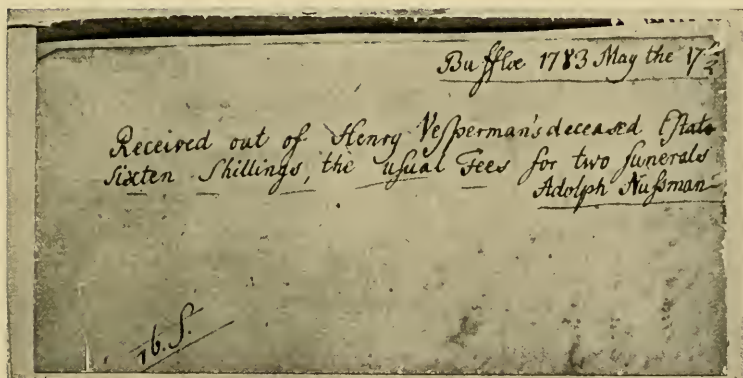 Buffloe 1783 May the 17
Received out of Henry Veſperman's deceased Eſtate
Sixten Shillings, the uſual Fees for two funerals
Adolph Nuſsman
16. S.